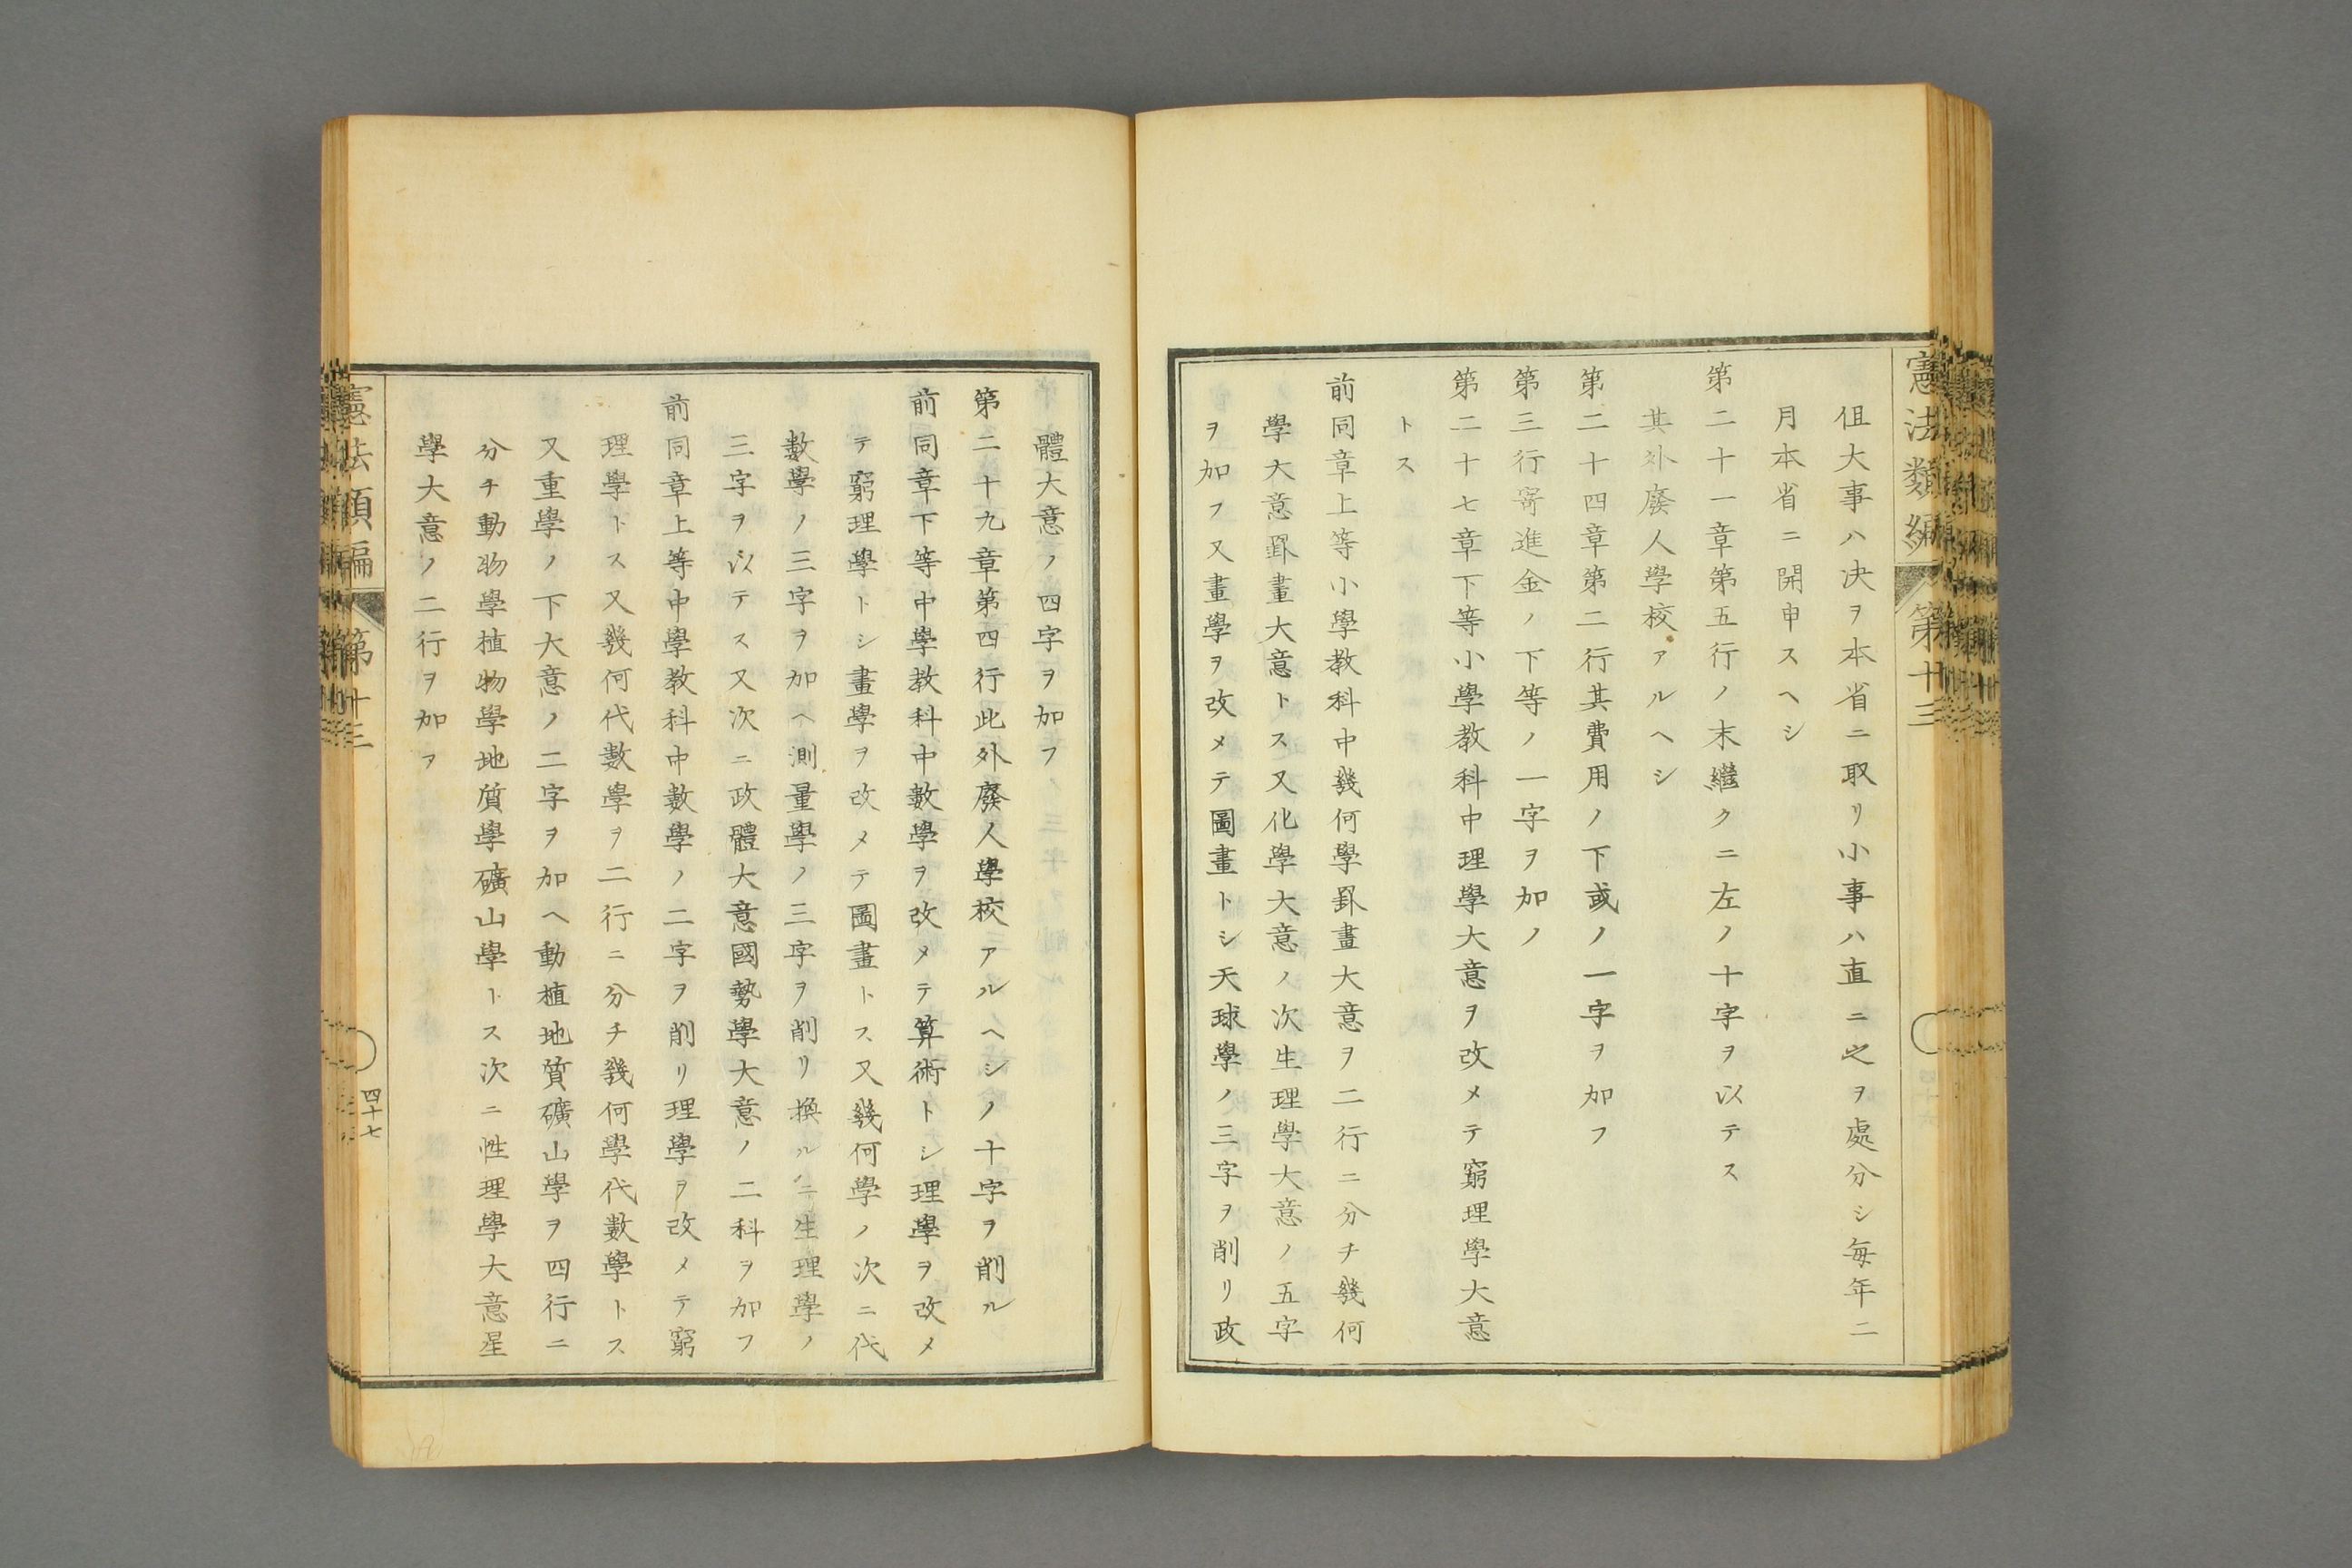 憲法類編 第十三
但大事ハ決ヲ本省ニ取リ小事ハ直ニ之ヲ處分シ毎年二
月本省ニ開申スヘシ
第二十一章第五行ノ末繼クニ左ノ十字ヲ以テス
其外廢人學校アルヘシ
第二十四章第二行其費用ノ下或ノ一字ヲ加フ
第三行寄進金ノ下等ノ一字ヲ加ノ
第二十七章下等小學教科中理學大意ヲ改メテ窮理學大意
トス
前同章上等小學教科中幾何學罫畫大意ヲ二行ニ分チ幾何
學大意罫畫大意トス又化學大意ノ次生理學大意ノ五字
ヲ加フ又畫學ヲ改メテ圖畫トシ天球學ノ三字ヲ削リ政
體大意ノ四字ヲ加フ
第二十九章第四行此外廢人學校アルヘシノ十字ヲ削ル
前同章下等中學教科中數學ヲ改メテ算術トシ理學ヲ改メ
テ窮理學トシ畫學ヲ改メテ圖畫トス又幾何學ノ次ニ代
數學ノ三字ヲ加ヘ測量學ノ三字ヲ削リ換ルニ生理學ノ
三字ヲ以テス又次ニ政體大意國勢學大意ノ二科ヲ加フ
前同章上等中學教科中數學ノ二字ヲ削リ理學ヲ改メテ窮
理學トス又幾何代數學ヲ二行ニ分チ幾何學代數學トス
又重學ノ下大意ノ二字ヲ加ヘ動植地質礦山學ヲ四行ニ
分チ動物學植物學地質學礦山學トス次ニ性理學大意星
學大意ノ二行ヲ加ア
憲法類編 第十三
四十七